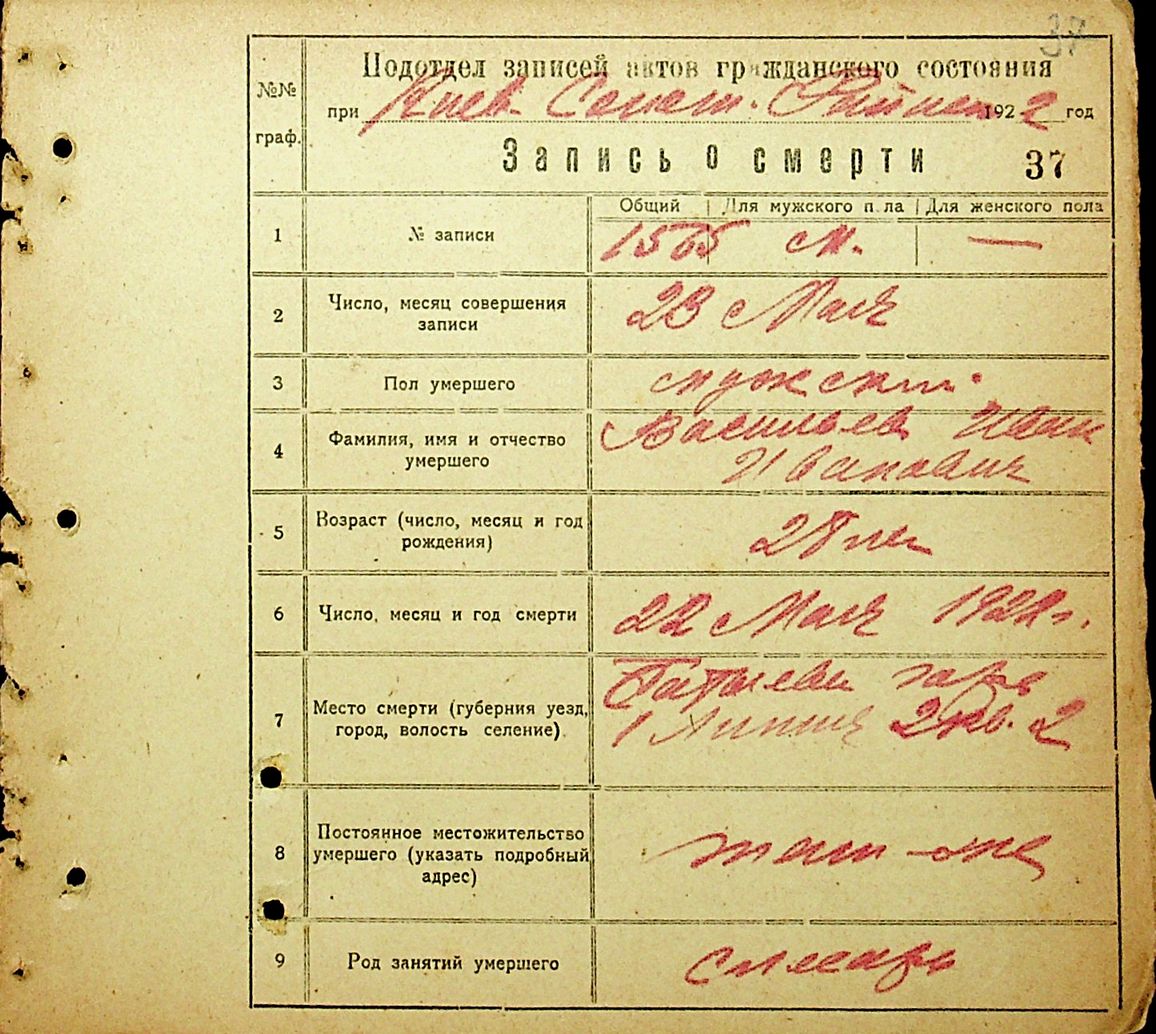 37
Подотдел записей актов гражданского состояния
при Киев. 1922 год
№№ граф.
Запись о смерти 37
Общий | Для мужского пола | Для женского пола
1 № записи м. —
2 Число, месяц совершения записи 23 Мая
3 Пол умершего мужской.
4 Фамилия, имя и отчество умершего Васильев Иван Иванович
5 Возраст (число, месяц и год рождения) лет
6 Число, месяц и год смерти 22 Мая 1922 г.
7 Место смерти (губерния уезд, город, волость селение) 1 Линия 2 кв. 2
8 Постоянное местожительство умершего (указать подробный адрес) там-же
9 Род занятий умершего слесарь